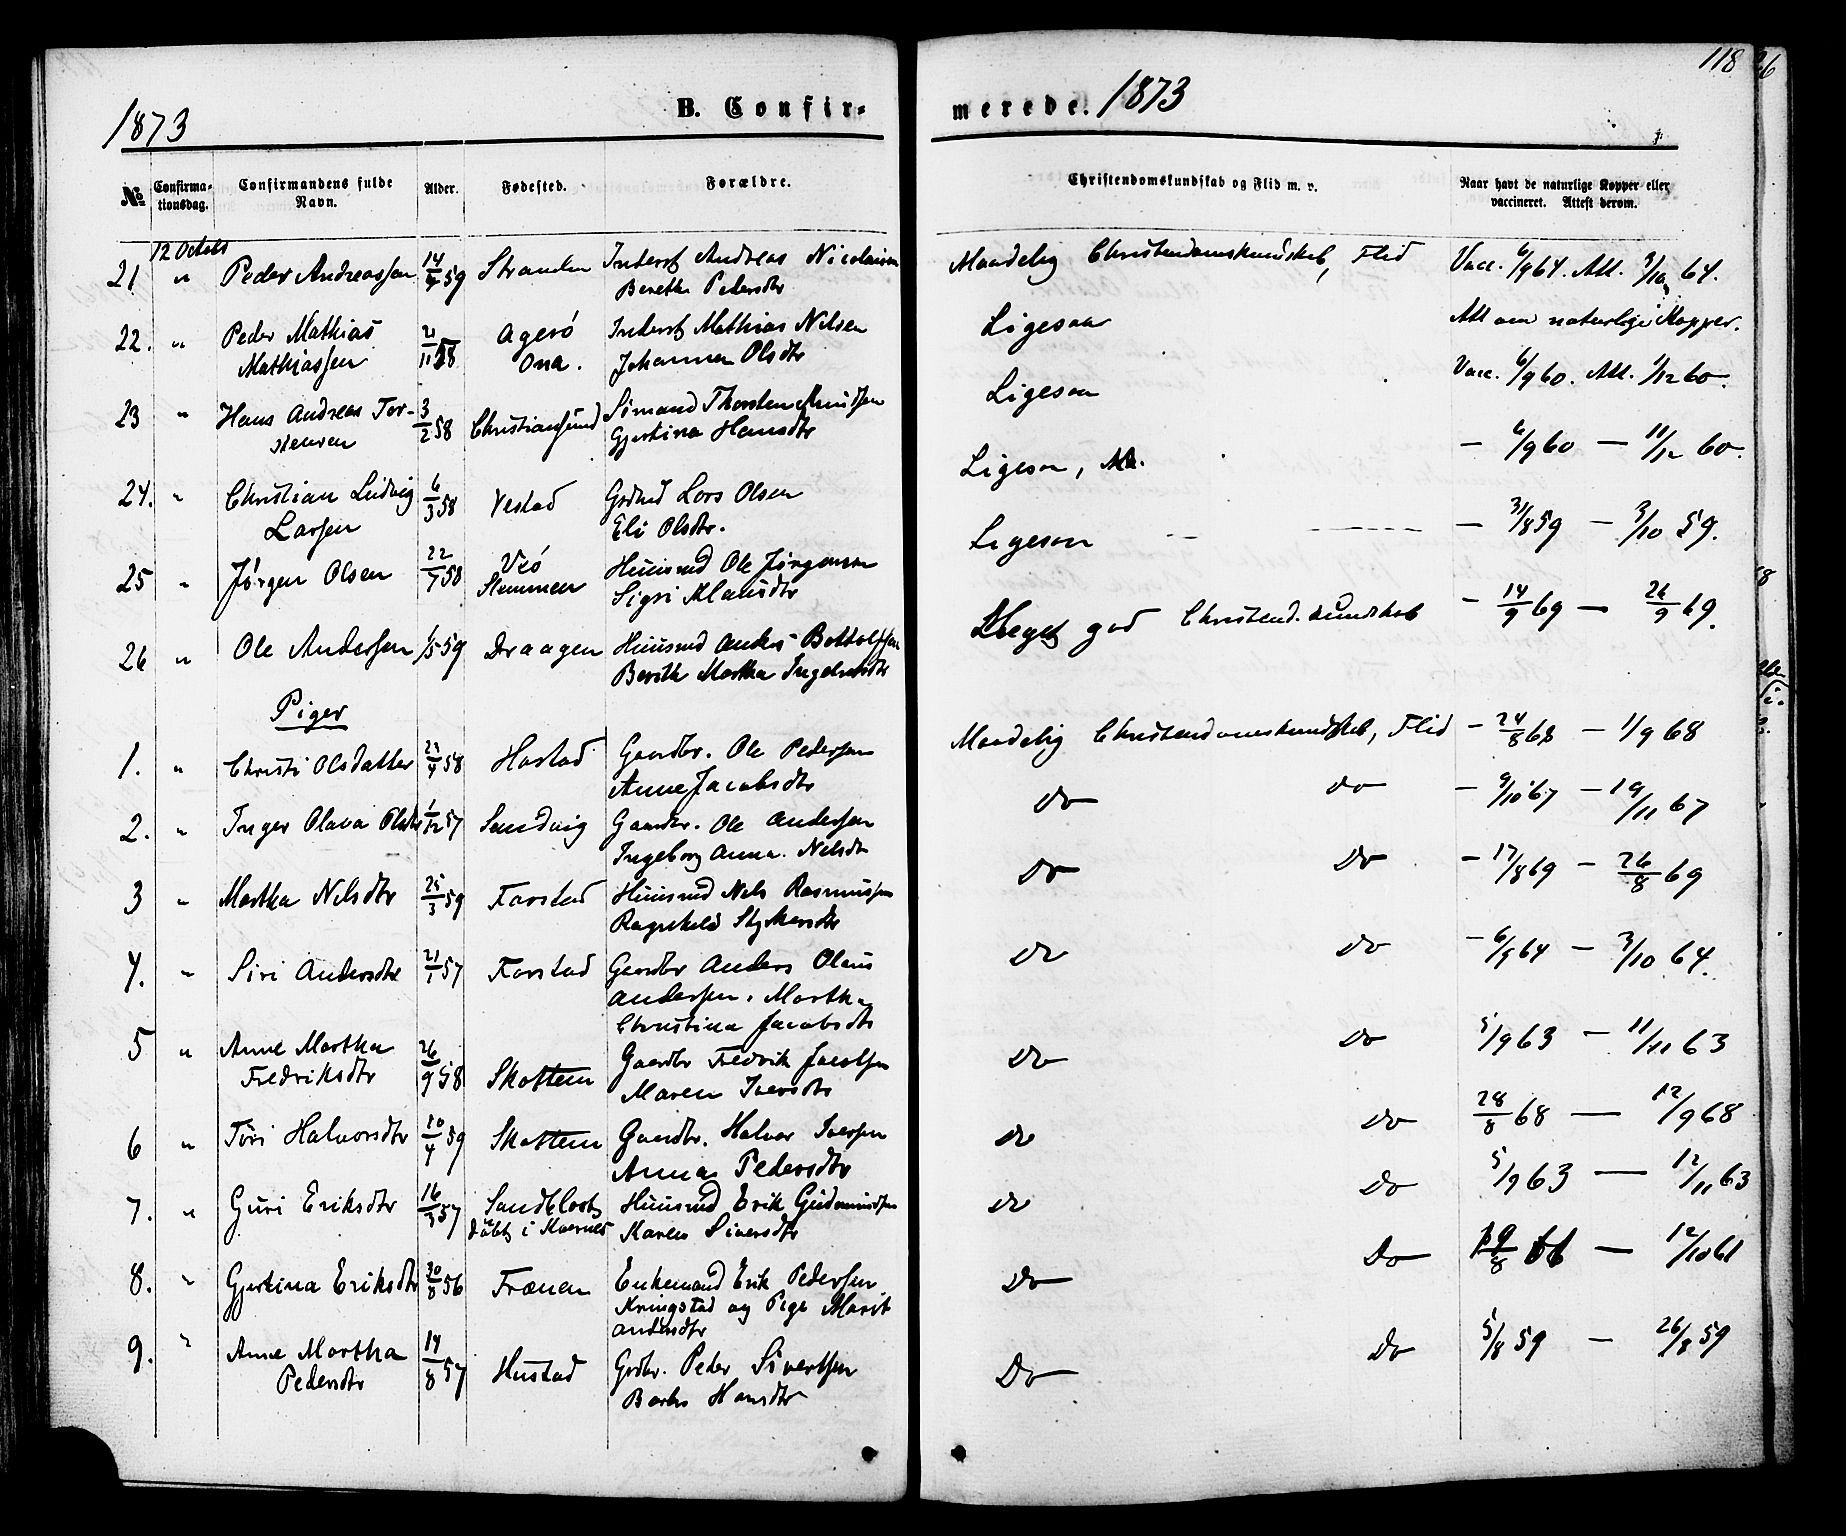 118
1873
B. Confir-
merede. 1873
No
Confirma-
tionsdag.
Confirmandens fulde
Navn.
Alder.
Fødested.
Forældre.
Christendomskundskab og Flid m. v.
Naar havt de naturlige Kopper eller
vaccineret. Attest derom.
12 Octobr
21 " Peder Andreassen 14/9 59 Stranden Inderst Andreas Nicolaisen
Beretha Pedersdtr
Maadelig Christendomskundskab, Flid Vacc. 6/9 64. Att. 3/10 64.
22. " Peder Mathias 2/11 58 Agerö Inderst Mathias Nilsen
Mathiassen Ona. Johanna Olsdtr
Ligesaa Att om naturlige Kopper.
23 " Hans Andreas Tor- 3/2 58 Christiansund Sömand Thorsten Knudsen
stensen Gjertina Hansdtr
Ligesaa Vacc. 6/9 60. Att. 1/12 60.
24. " Christian Ludvig 6/3 58 Vestad Grdmd Lars Olsen
Larsen Eli Olsdtr.
Ligesaa, - 6/9 60 - 11/12 60.
25 " Jørgen Olsen 22/7 58 Veö Huusmd Ole Jørgensen
Stemmen Sigri Klausdtr
Ligesaa - 31/8 59 - 3/10 59.
26 " Ole Andersen 1/5 59 Draagen Huusmd Anders Bottolfsen
Berith Martha Ingebrdtr
Meget god Christend.kundskab - 14/9 69 - 26/9 69.
Piger
1. " Christi Olsdatter 24/4 58 Harstad Gaardbr. Ole Pedersen
Anne Jacobsdtr
Maadelig Christendomskundskab, Flid - 24/8 68 - 1/9 68
2. " Inger Olava Olsdtr 1/12 57 Sandvig Gaardbr. Ole Andersen
Ingeborg Anna. Nilsdtr
do do - 9/10 67 - 19/11 67
3 " Martha Nilsdtr 25/3 59 Farstad Huusmd Nils Rasmussen
Ragnhild Styrkersdtr
Do Do - 17/8 69 - 26/8 69
4. " Siri Andersdtr 21/1 57 Farstad Gaardbr Anders Olaus
Andersen. Martha
Christina Jacobsdtr
do do - 6/9 64 - 3/10 64.
5 " Anne Martha 26/9 58 Skottem Gaardbr Fredrik Jacobsen
Fredriksdtr Maren Iversdtr
do do 5/9 63 - 11/11 63
6 " Töri Halvorsdtr 10/4 59 Skottem Gaardbr. Halvor Iversen
Anna Pedersdtr
do do 28/8 68 - 12/9 68
7. " Guri Eriksdtr 16/3 57 Sandblost Huusmd Erik Gudmundsen
döbt i Kvernes Karen Siversdtr
do do 5/9 63 - 12/11 63
8. " Gjertina Eriksdtr 30/8 56 Frænen Enkemand Erik Pedersen
Kringstad og Pige Marit
Andersdtr
Do Do 19/8 61 - 12/10 61
9. " Anne Martha 14/8 57 Hustad Grdbr. Peder Sivertsen
Pedersdtr Barbro Hansdtr
Do Do 5/8 59 - 26/8 59